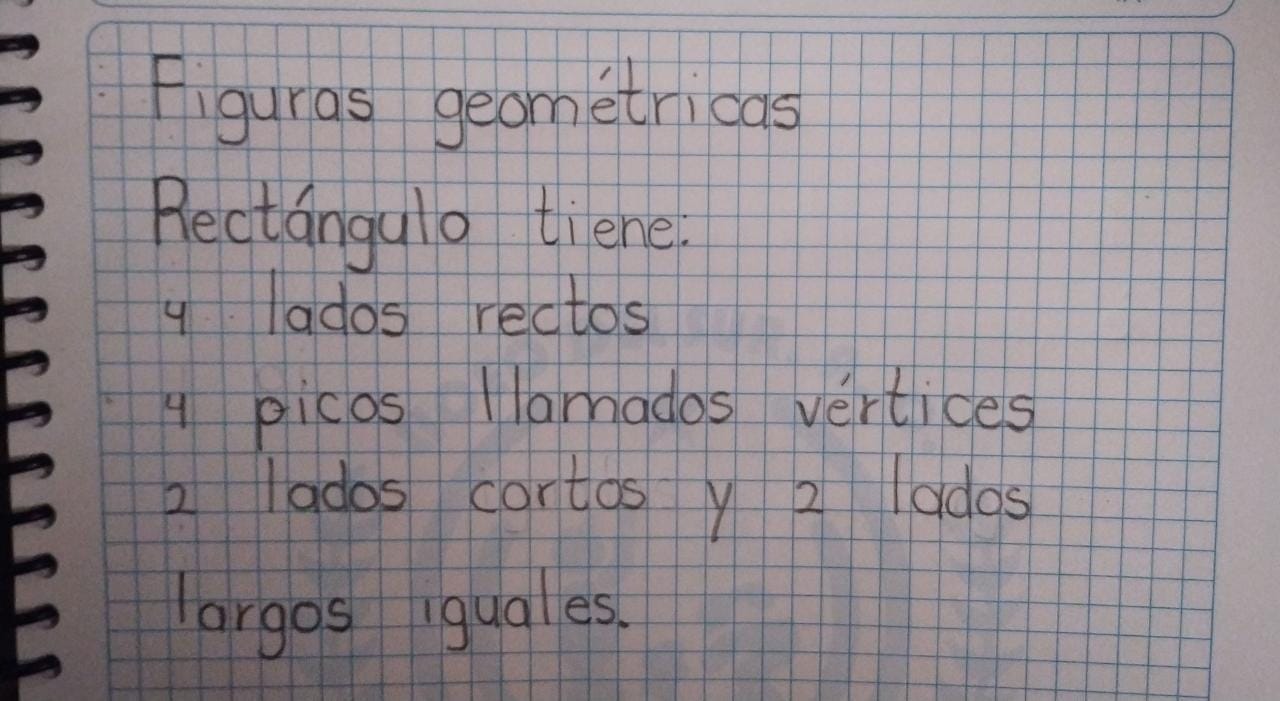 Figuras geométricas
Rectángulo tiene:
4 lados rectos
4 picos llamados vértices
2 lados cortos y 2 lados
largos iguales.